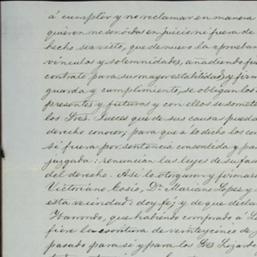 á cumplir y no reclamar en manera
quieren ne ser oidos en juicio ni fuera de
hecho se visto, que de nuevo la aprueban
vinculos y solemnidades, añadiendo fu
contrato para su mayor estabilidad; y firm
guarda y cumplimiento, se obligan los
presentes y futuros y con ellos se somete
los Sres. Jueces que de sus causas pueda
derecho conocer; para que á lo dicho los com
si fuera por sentencia consentida y pas
juzgada: renuncian las leyes de su fa
del derecho. Asi lo otorgan y firmar
Victoriano Cosio, Dn. Mariano Lopez y
esta vecindad: doy fe; y de que dicha
que habiendo comprado á
fiere la escritura de veinte y cinco de
pasado para si y para los Sres.